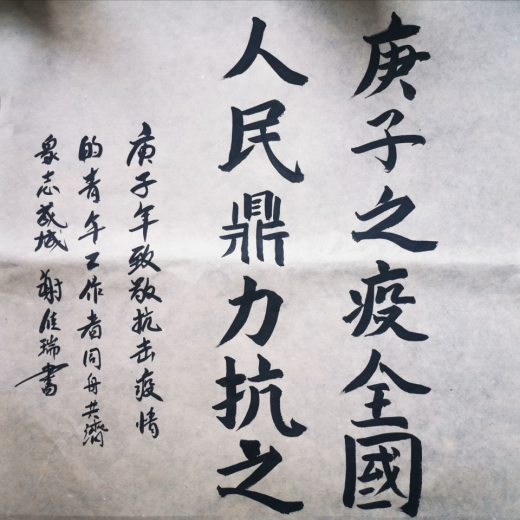 庚子之疫全國
人民鼎力抗之
庚子年致敬抗击疫情
的青年工作者同舟共濟
衆志成城 謝佳瑞書